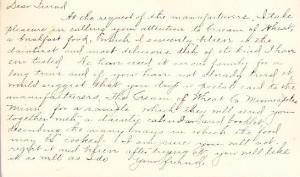 Dear Friend
At the request of the manufacturers, I take
pleasure in calling your attention to Cream of Wheat,
a breakfast food, which I sincerely believe is the
daintiest and most delicious dish of its kind I have
ever tasted. We have used it in our family for a
long time and if you have not already tried it,
would suggest that you drop a postal card to the
manufacturers, The Cream of Wheat Co Minneapolis
Minn for a sample which they will send you
together with a dainty calendar and booklet
describing the many ways in which the food
may be cooked. I am sure you will not
regret it and after trying it, you will like
it as well as I do Your friend